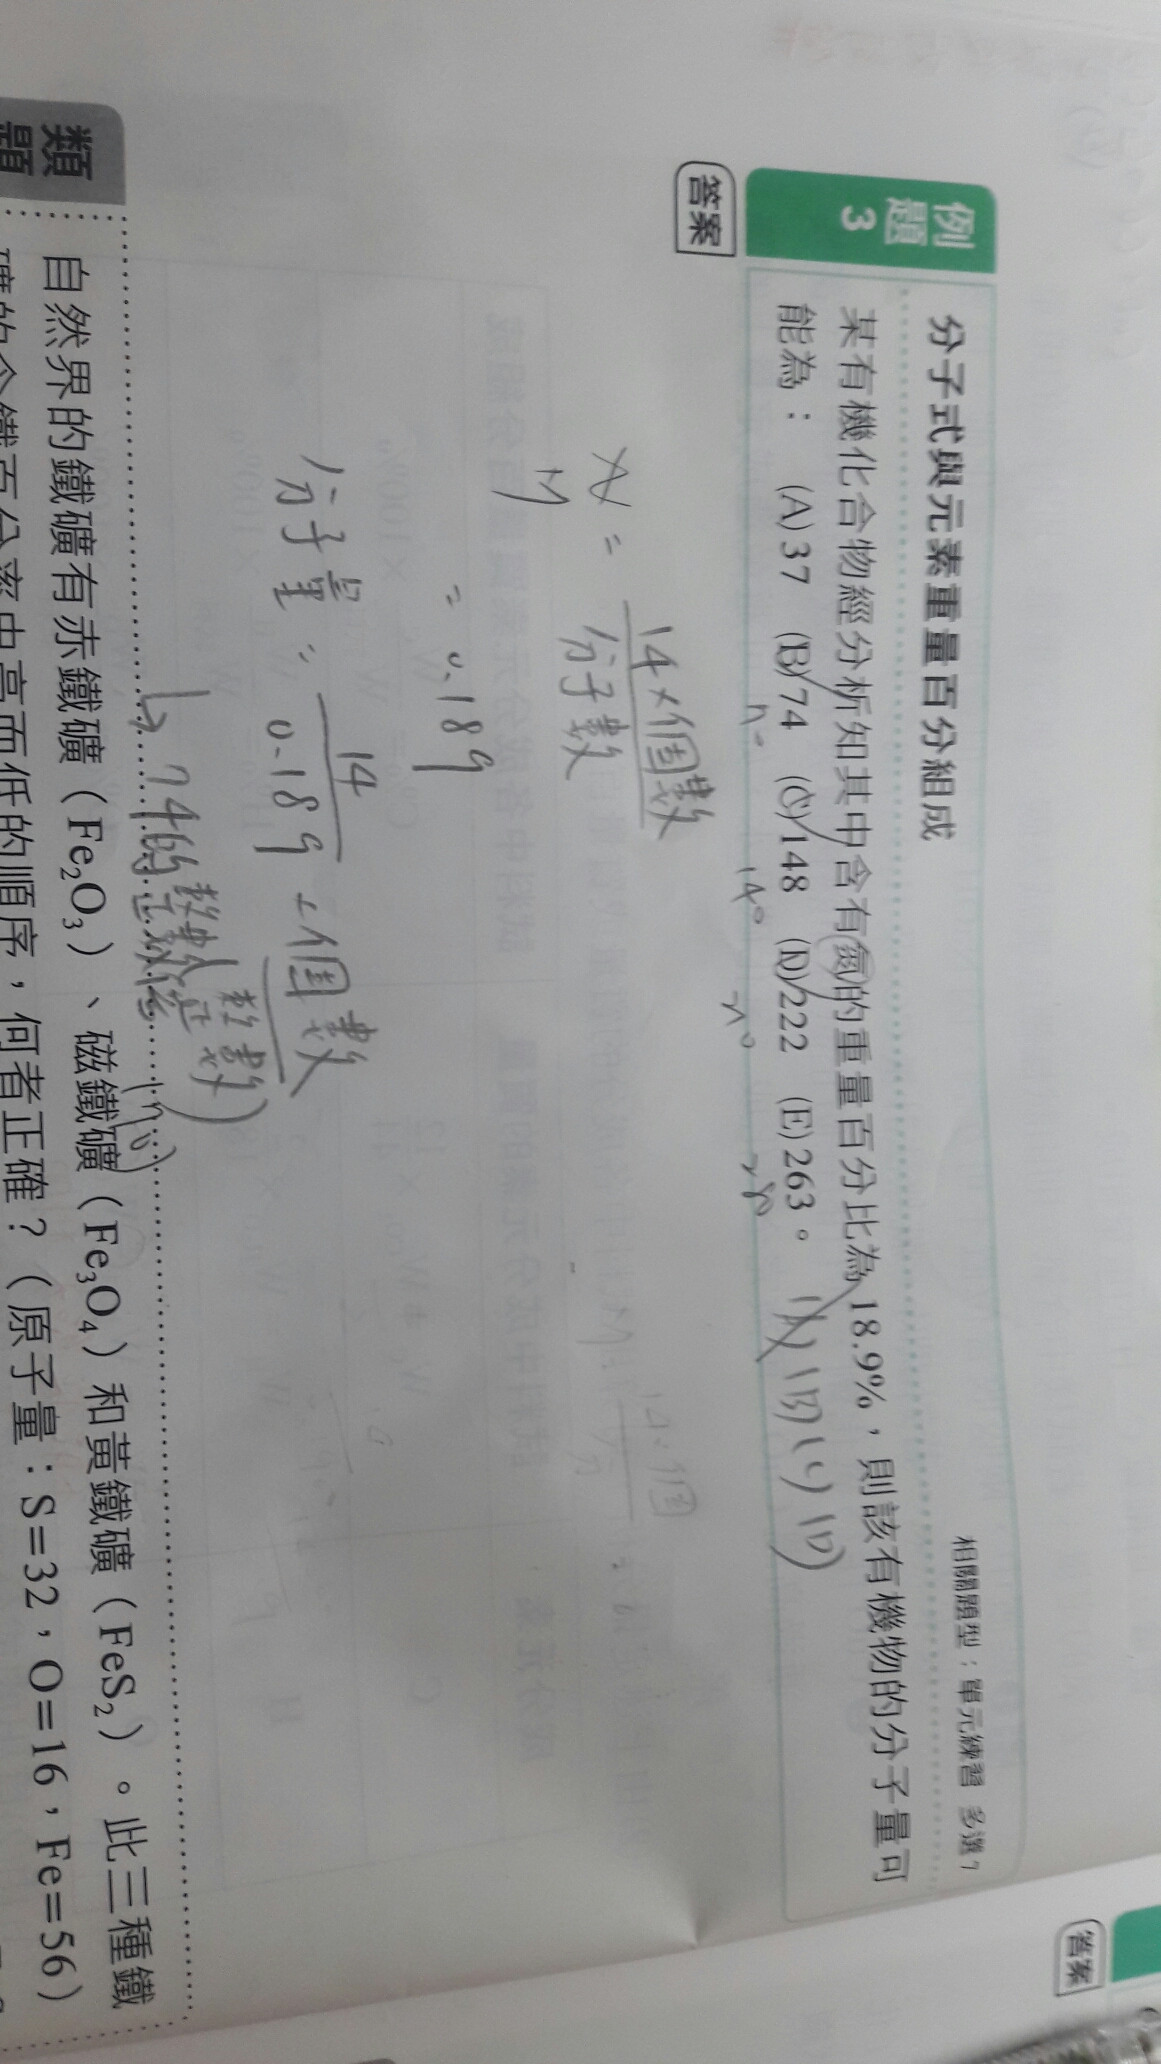 例題 3
分子式與元素重量百分組成
相關題型：單元練習 多選7
某有機化合物經分析知其中含有氮的重量百分比為 18.9%，則該有機物的分子量可
能為： (A)37 (B)74 (C)148 (D)222 (E)263。 (B)(C)(D)
答案
N = 14×個數
分子數
= 0.189
分子量 = 14
0.189 × 個數
整數
74的整數倍
類題
自然界的鐵礦有赤鐵礦（Fe₂O₃）、磁鐵礦（Fe₃O₄）和黃鐵礦（FeS₂）。此三種鐵
礦的含鐵百分率由高而低的順序，何者正確？（原子量：S=32，O=16，Fe=56）
答案